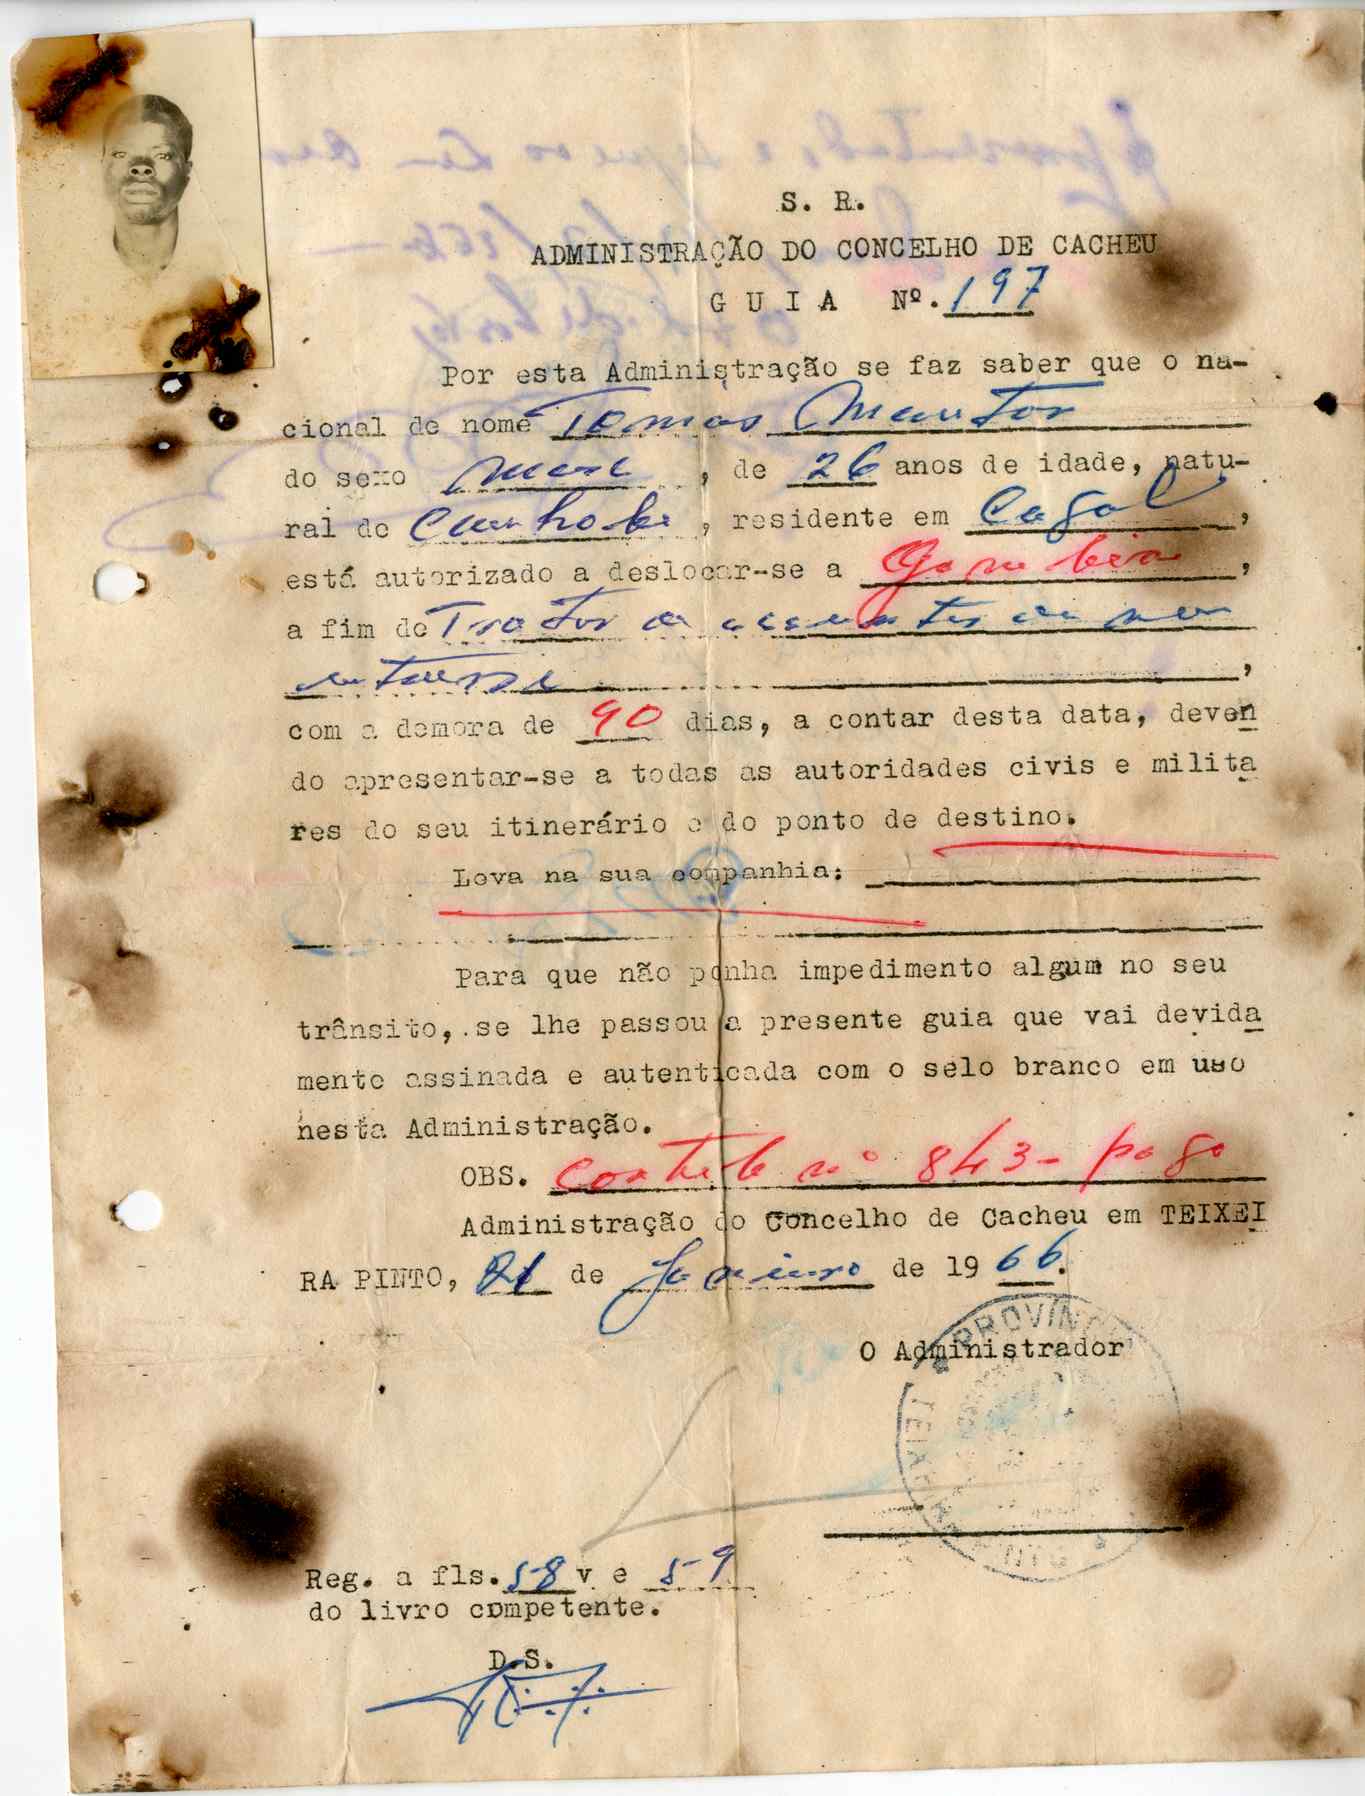 S. R.
ADMINISTRAÇÃO DO CONCELHO DE CACHEU
GUIA Nº. 197
Por esta Administração se faz saber que o na-
cional de nome Tomas
do sexo masc , de 26 anos de idade, natu-
ral de , residente em Cagol ,
está autorizado a deslocar-se a Gambia ,
a fim de Tratar de assuntos de seu
interesse ,
com a demora de 90 dias, a contar desta data, deven
do apresentar-se a todas as autoridades civis e milita
res do seu itinerário e do ponto de destino.
Leva na sua companhia:
Para que não ponha impedimento algum no seu
trânsito, se lhe passou a presente guia que vai devida
mente assinada e autenticada com o selo branco em uso
nesta Administração.
OBS. nº 843 - pago
Administração do Concelho de Cacheu em TEIXEI
RA PINTO, 21 de Janeiro de 1966.
O Administrador
Reg. a fls. 58 v e 59
do livro competente.
D.S.